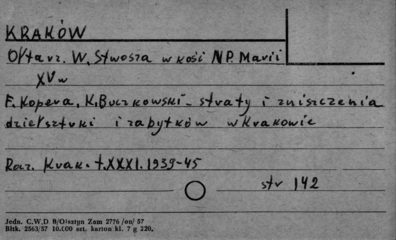 KRAKÓW
Ołtarz. W. Stwosza w kość NP. Marii
XV w
F. Kopera, K. Buczkowski - straty i zniszczenia
dzieł sztuki i zabytków w Krakowie
Rocz. Krak. t. XXXI. 1939-45
str 142
Jedn. C.W.D B/Olsztyn Zam 2776 /on/ 57
Bltk. 2563/57 10.000 szt. karton kl. 7 g 220,